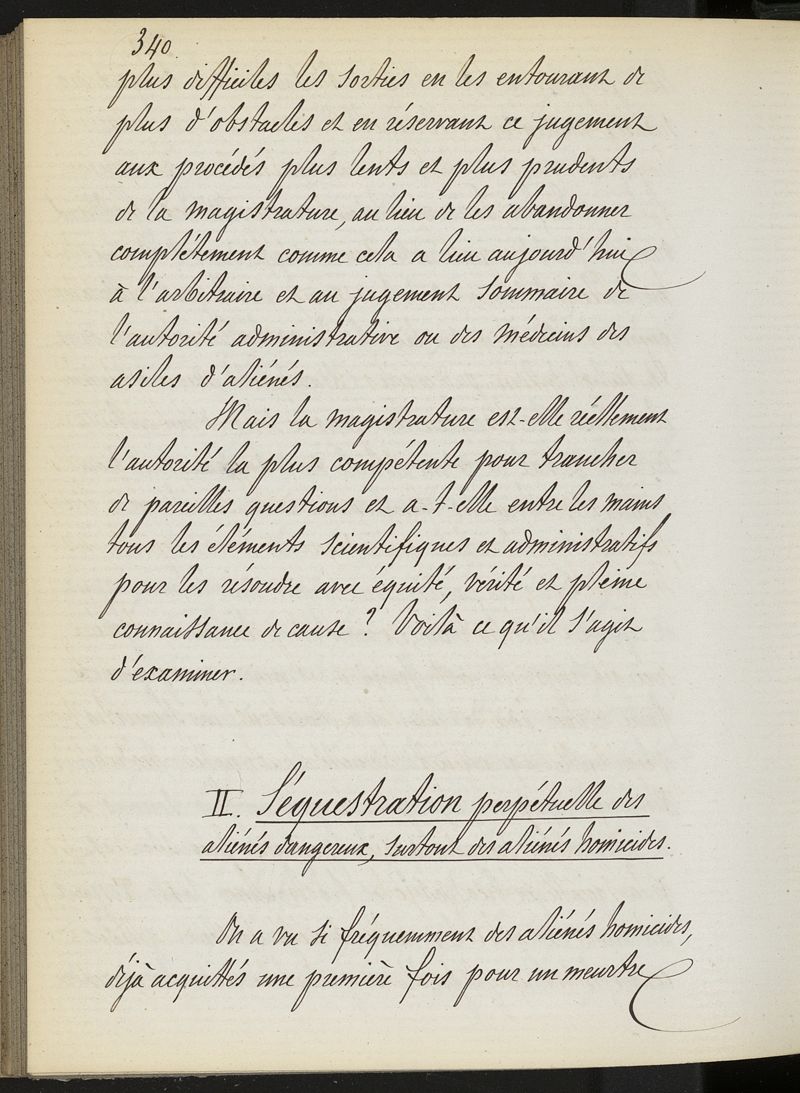 340.
plus difficiles les sorties en les entourant de
plus d'obstacles et en réservant ce jugement
aux procédés plus lents et plus prudents
de la magistrature, au lieu de les abandonner
complétement comme cela a lieu aujourd'hui
à l'arbitraire et au jugement sommaire de
l'autorité administrative ou des médecins des
asiles d'aliénés.
Mais la magistrature est-elle réellement
l'autorité la plus compétente pour trancher
de pareilles questions et a-t-elle entre les mains
tous les éléments scientifiques et administratifs
pour les résoudre avec équité, vérité et pleine
connaissance de cause ? Voilà ce qu'il s'agit
d'examiner.
II. Séquestration perpétuelle des
aliénés dangereux, surtout des aliénés homicides.
On a vu si fréquemment des aliénés homicides,
déjà acquittés une première fois pour un meurtre